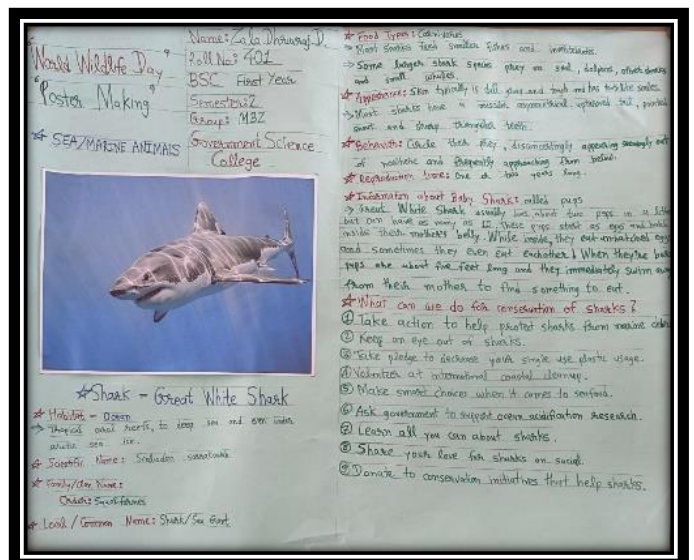 "World Wildlife Day"
"Poster Making"
☆ SEA/MARINE ANIMALS
Name: Zala Dhruvraj .D.
Roll No: 401
BSC First Year
Semester: 2
Group: MBZ
Government Science
College
☆ Shark - Great White Shark
☆ Habitat - Ocean
→ Tropical coral reefs, to deep sea and even under
arctic sea ice.
☆ Scientific Name:
☆ Family/
Order:
☆ Local / Common Name: Shark/Sea
☆ Food Types: Carnivores
→ Most Sharks feed smaller fishes and invertebrates.
→ Some larger shark species prey on seal, dolphins, other sharks
and small whales.
☆ Appearance: Skin typically is dull gray and tough and has tooth like scales.
→ Most sharks have a muscular asymmetrical, upturned tail, pointed
snout and sharp triangular teeth.
☆ Behavior: Circle their prey, disconcertingly appearing seemingly out
of nowhere and frequently approaching from below.
☆ Reproduction : One or two years long.
☆ Information about Baby Shark: called pups
→ Great White Shark usually has about two pups in a litter
but can have as many as 12. These pups start as eggs and hatch
inside their mother's belly. While inside, they eat unhatched eggs
and sometimes they even eat eachother! When they're born
pups are about five feet long and they immediately swim away
from their mother to find something to eat.
☆ What can we do for conservation of sharks?
① Take action to help protect sharks from marine debris
② Keep an eye out of sharks.
③ Take pledge to decrease your single use plastic usage.
④ Volunteer at international coastal cleanup.
⑤ Make smart choices when it comes to seafood.
⑥ Ask government to support ocean acidification research.
⑦ Learn all you can about sharks.
⑧ Share your love for sharks on social.
⑨ Donate to conservation initiatives that help sharks.